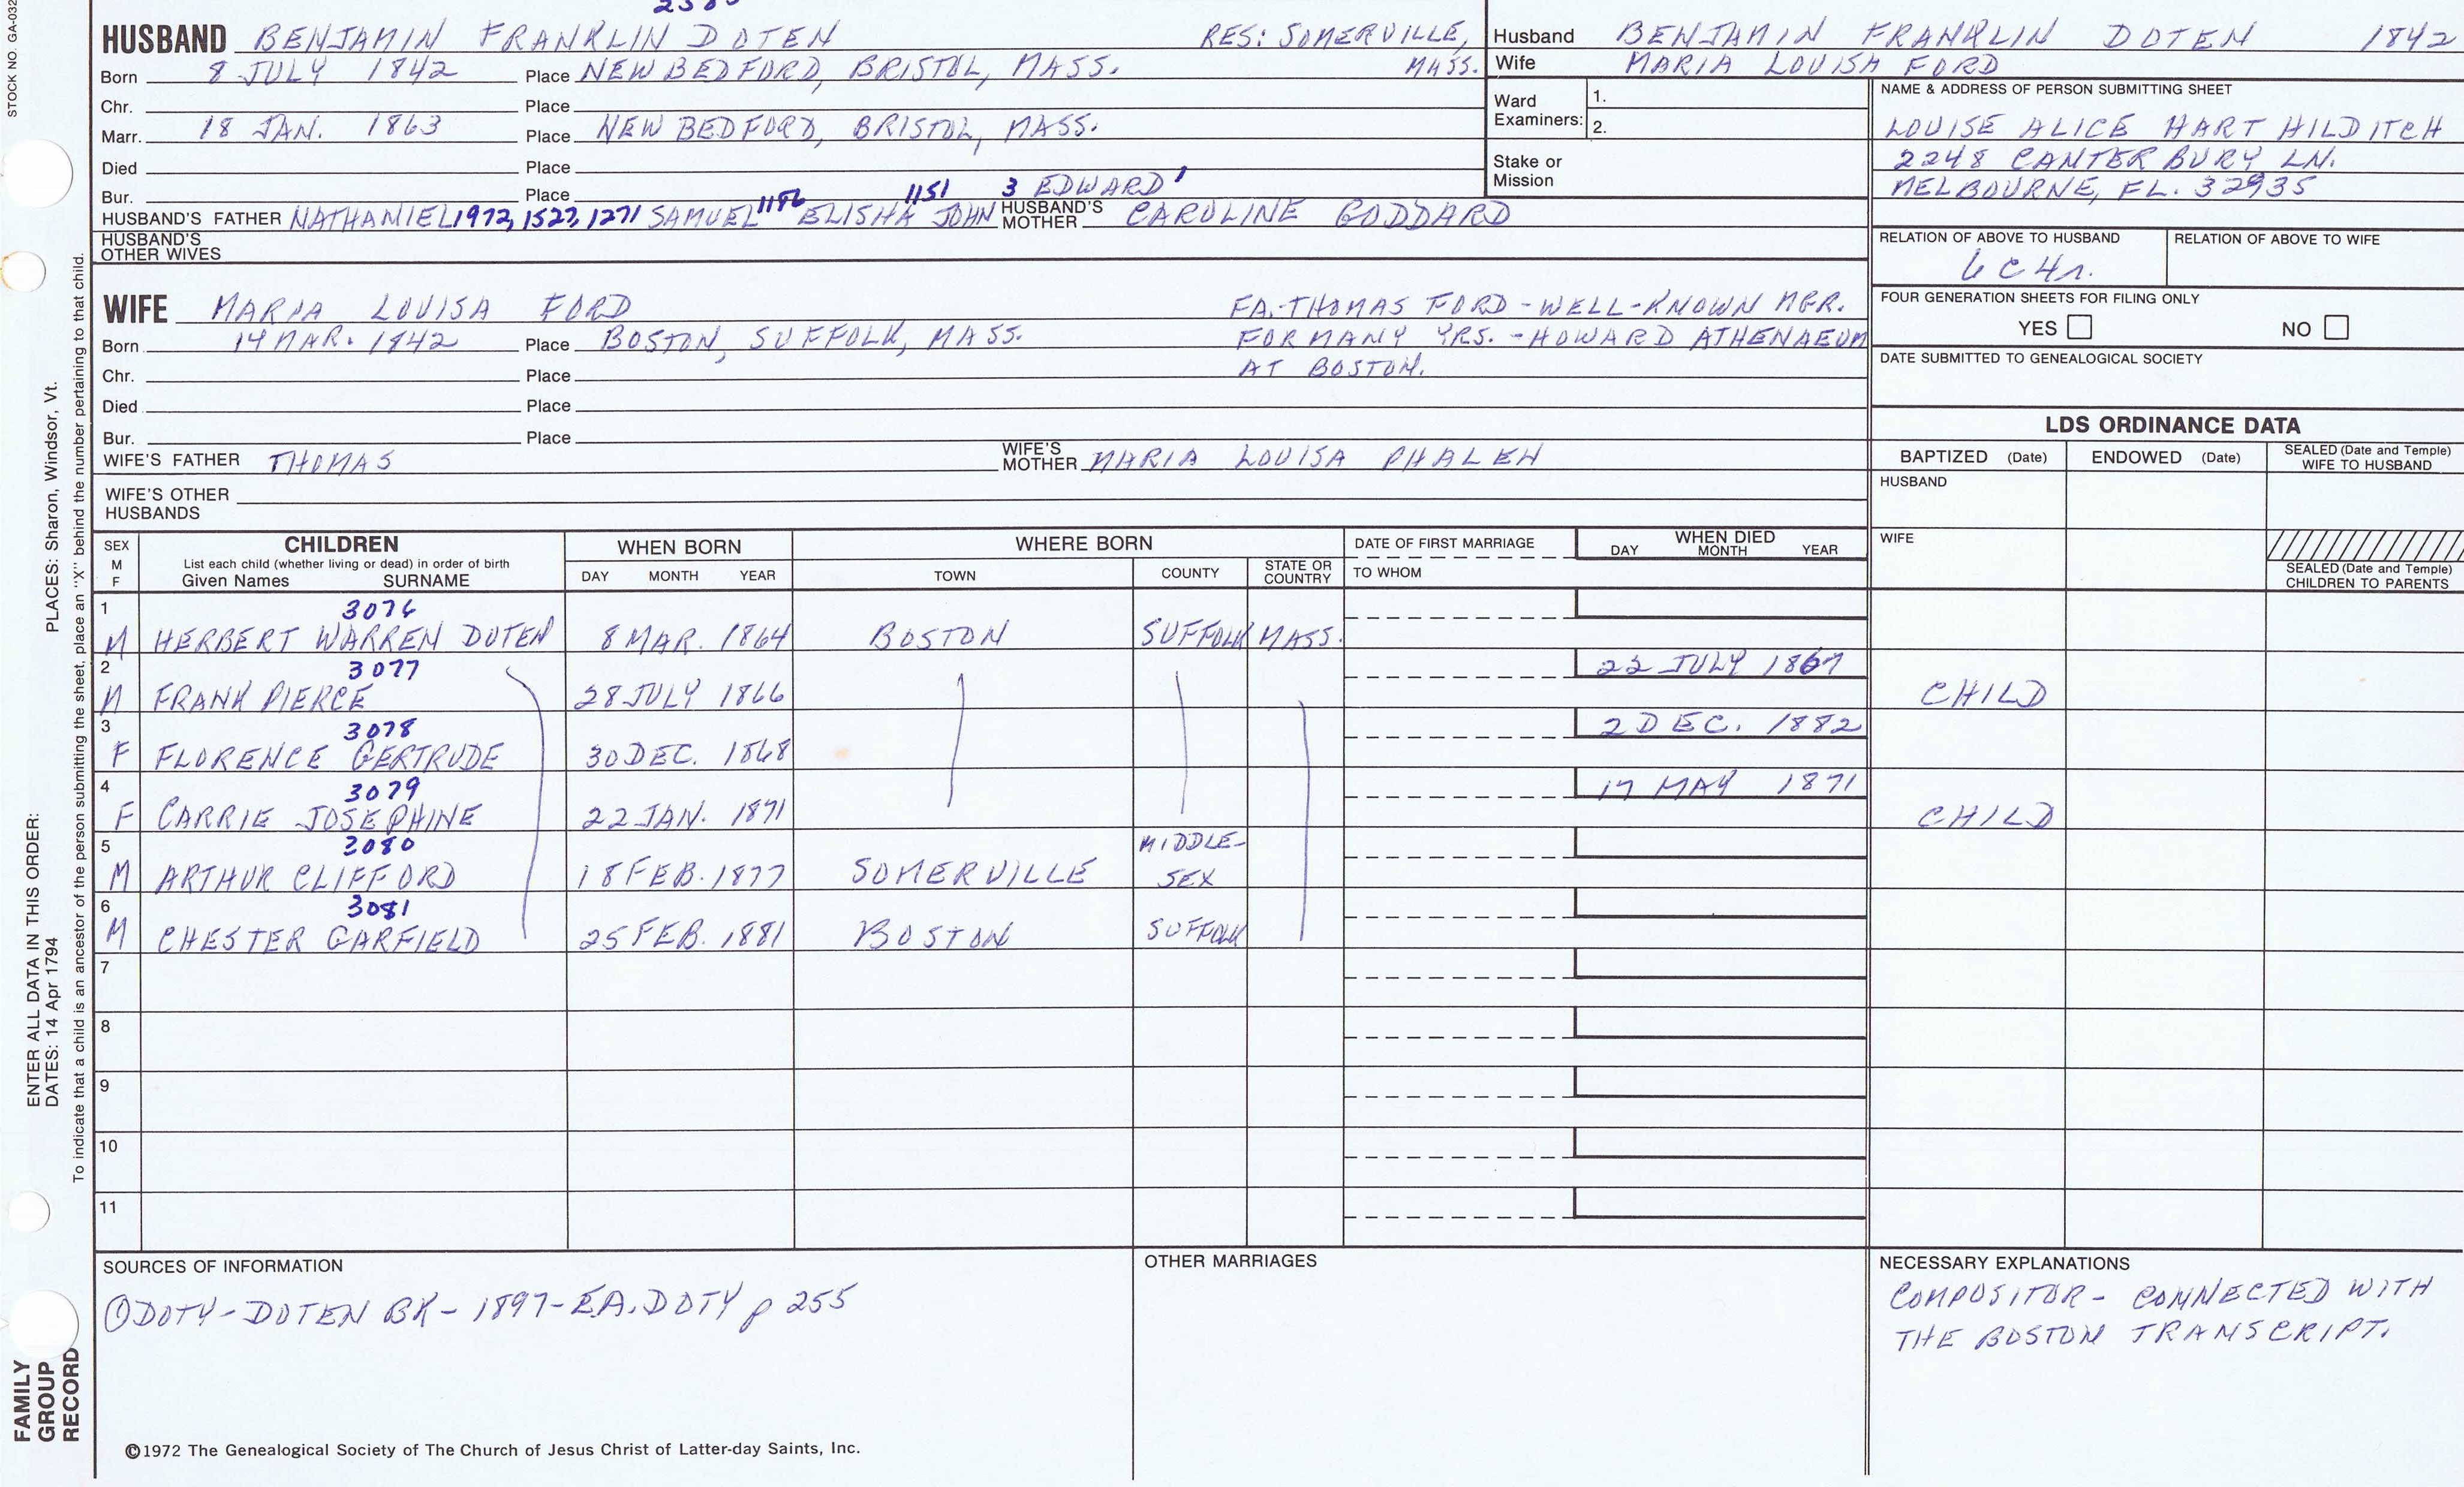 STOCK NO. GA-032
HUSBAND BENJAMIN FRANKLIN DOTEN RES: SOMERVILLE, MASS.
Born 8 JULY 1842 Place NEW BEDFORD, BRISTOL, MASS.
Chr. Place
Marr. 18 JAN. 1863 Place NEW BEDFORD, BRISTOL, MASS.
Died Place
Bur. Place
HUSBAND'S FATHER NATHANIEL 1972, 1527, 1271 SAMUEL 1186 ELISHA 1151 JOHN 3 EDWARD 1 HUSBAND'S MOTHER CAROLINE GODDARD
HUSBAND'S OTHER WIVES
Husband BENJAMIN FRANKLIN DOTEN 1842
Wife MARIA LOUISA FORD
Ward Examiners: 1.
2.
Stake or Mission
NAME & ADDRESS OF PERSON SUBMITTING SHEET
LOUISE ALICE HART HILDITCH
2248 CANTERBURY LN.
MELBOURNE, FL. 32935
RELATION OF ABOVE TO HUSBAND RELATION OF ABOVE TO WIFE
6C4r.
FOUR GENERATION SHEETS FOR FILING ONLY
YES NO
DATE SUBMITTED TO GENEALOGICAL SOCIETY
WIFE MARIA LOUISA FORD FA.-THOMAS FORD - WELL-KNOWN MGR.
Born 14 MAR. 1842 Place BOSTON, SUFFOLK, MASS. FOR MANY YRS. - HOWARD ATHENAEUM
Chr. Place AT BOSTON.
Died Place
Bur. Place
WIFE'S FATHER THOMAS WIFE'S MOTHER MARIA LOUISA PHALEN
WIFE'S OTHER HUSBANDS
LDS ORDINANCE DATA
BAPTIZED (Date) ENDOWED (Date) SEALED (Date and Temple) WIFE TO HUSBAND
HUSBAND
WIFE
SEALED (Date and Temple) CHILDREN TO PARENTS
SEX M F CHILDREN WHEN BORN WHERE BORN DATE OF FIRST MARRIAGE WHEN DIED
List each child (whether living or dead) in order of birth
Given Names SURNAME DAY MONTH YEAR TOWN COUNTY STATE OR COUNTRY TO WHOM DAY MONTH YEAR
1 3076
M HERBERT WARREN DOTEN 8 MAR. 1864 BOSTON SUFFOLK MASS.
2 3077 22 JULY 1867
M FRANK PIERCE 28 JULY 1866 CHILD
3 3078 2 DEC. 1882
F FLORENCE GERTRUDE 30 DEC. 1868
4 3079 17 MAY 1871
F CARRIE JOSEPHINE 22 JAN. 1871 CHILD
5 3080
M ARTHUR CLIFFORD 18 FEB. 1877 SOMERVILLE MIDDLE-SEX
6 3081
M CHESTER GARFIELD 25 FEB. 1881 BOSTON SUFFOLK
7
8
9
10
11
SOURCES OF INFORMATION
① DOTY-DOTEN BK - 1897 - E.A. DOTY p 255
OTHER MARRIAGES
NECESSARY EXPLANATIONS
COMPOSITOR - CONNECTED WITH
THE BOSTON TRANSCRIPT.
©1972 The Genealogical Society of The Church of Jesus Christ of Latter-day Saints, Inc.
FAMILY
GROUP
RECORD
ENTER ALL DATA IN THIS ORDER: PLACES: Sharon, Windsor, Vt.
DATES: 14 Apr 1794
To indicate that a child is an ancestor of the person submitting the sheet, place an "X" behind the number pertaining to that child.